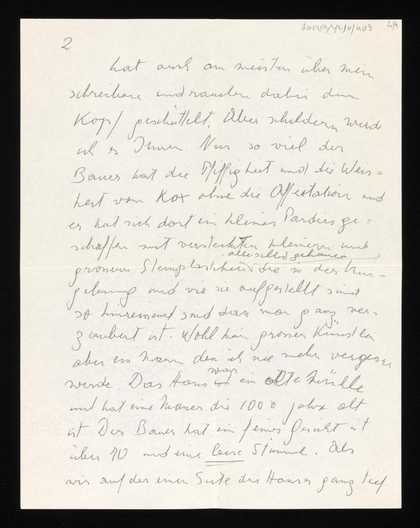 2
hat auch am meisten über mein
schreiben und rauchen dabei den
Kopf geschüttelt. Aber schildern werde
ich es Ihnen Nur so viel der
Bauer hat die Pfiffigkeit und die Weis-
heit vom Kox ohne die Affektation und
er hat sich dort ein kleines Paradies ge-
schaffen mit versteckten kleinern und
alles selbst gehauen
grossen die so der Um-
gebung und wie sie aufgestellt sind
so sind dass man ganz ver-
zaubert ist. Wohl kein grosser Künstler
aber ein Mann den ich nie mehr vergessen
werde. Das Haus war ein alte Mühle
und hat eine Mauer die 1000 Jahre alt
ist Der Bauer hat ein feines Gesicht ist
über 70 und eine leise Stimme. Als
wir auf der einen Seite des Hauses ganz tief